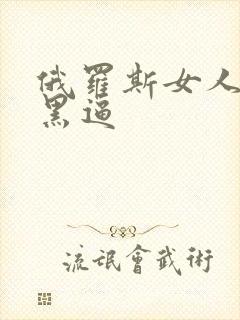 俄羅斯女人
黑逼
流氓會武術